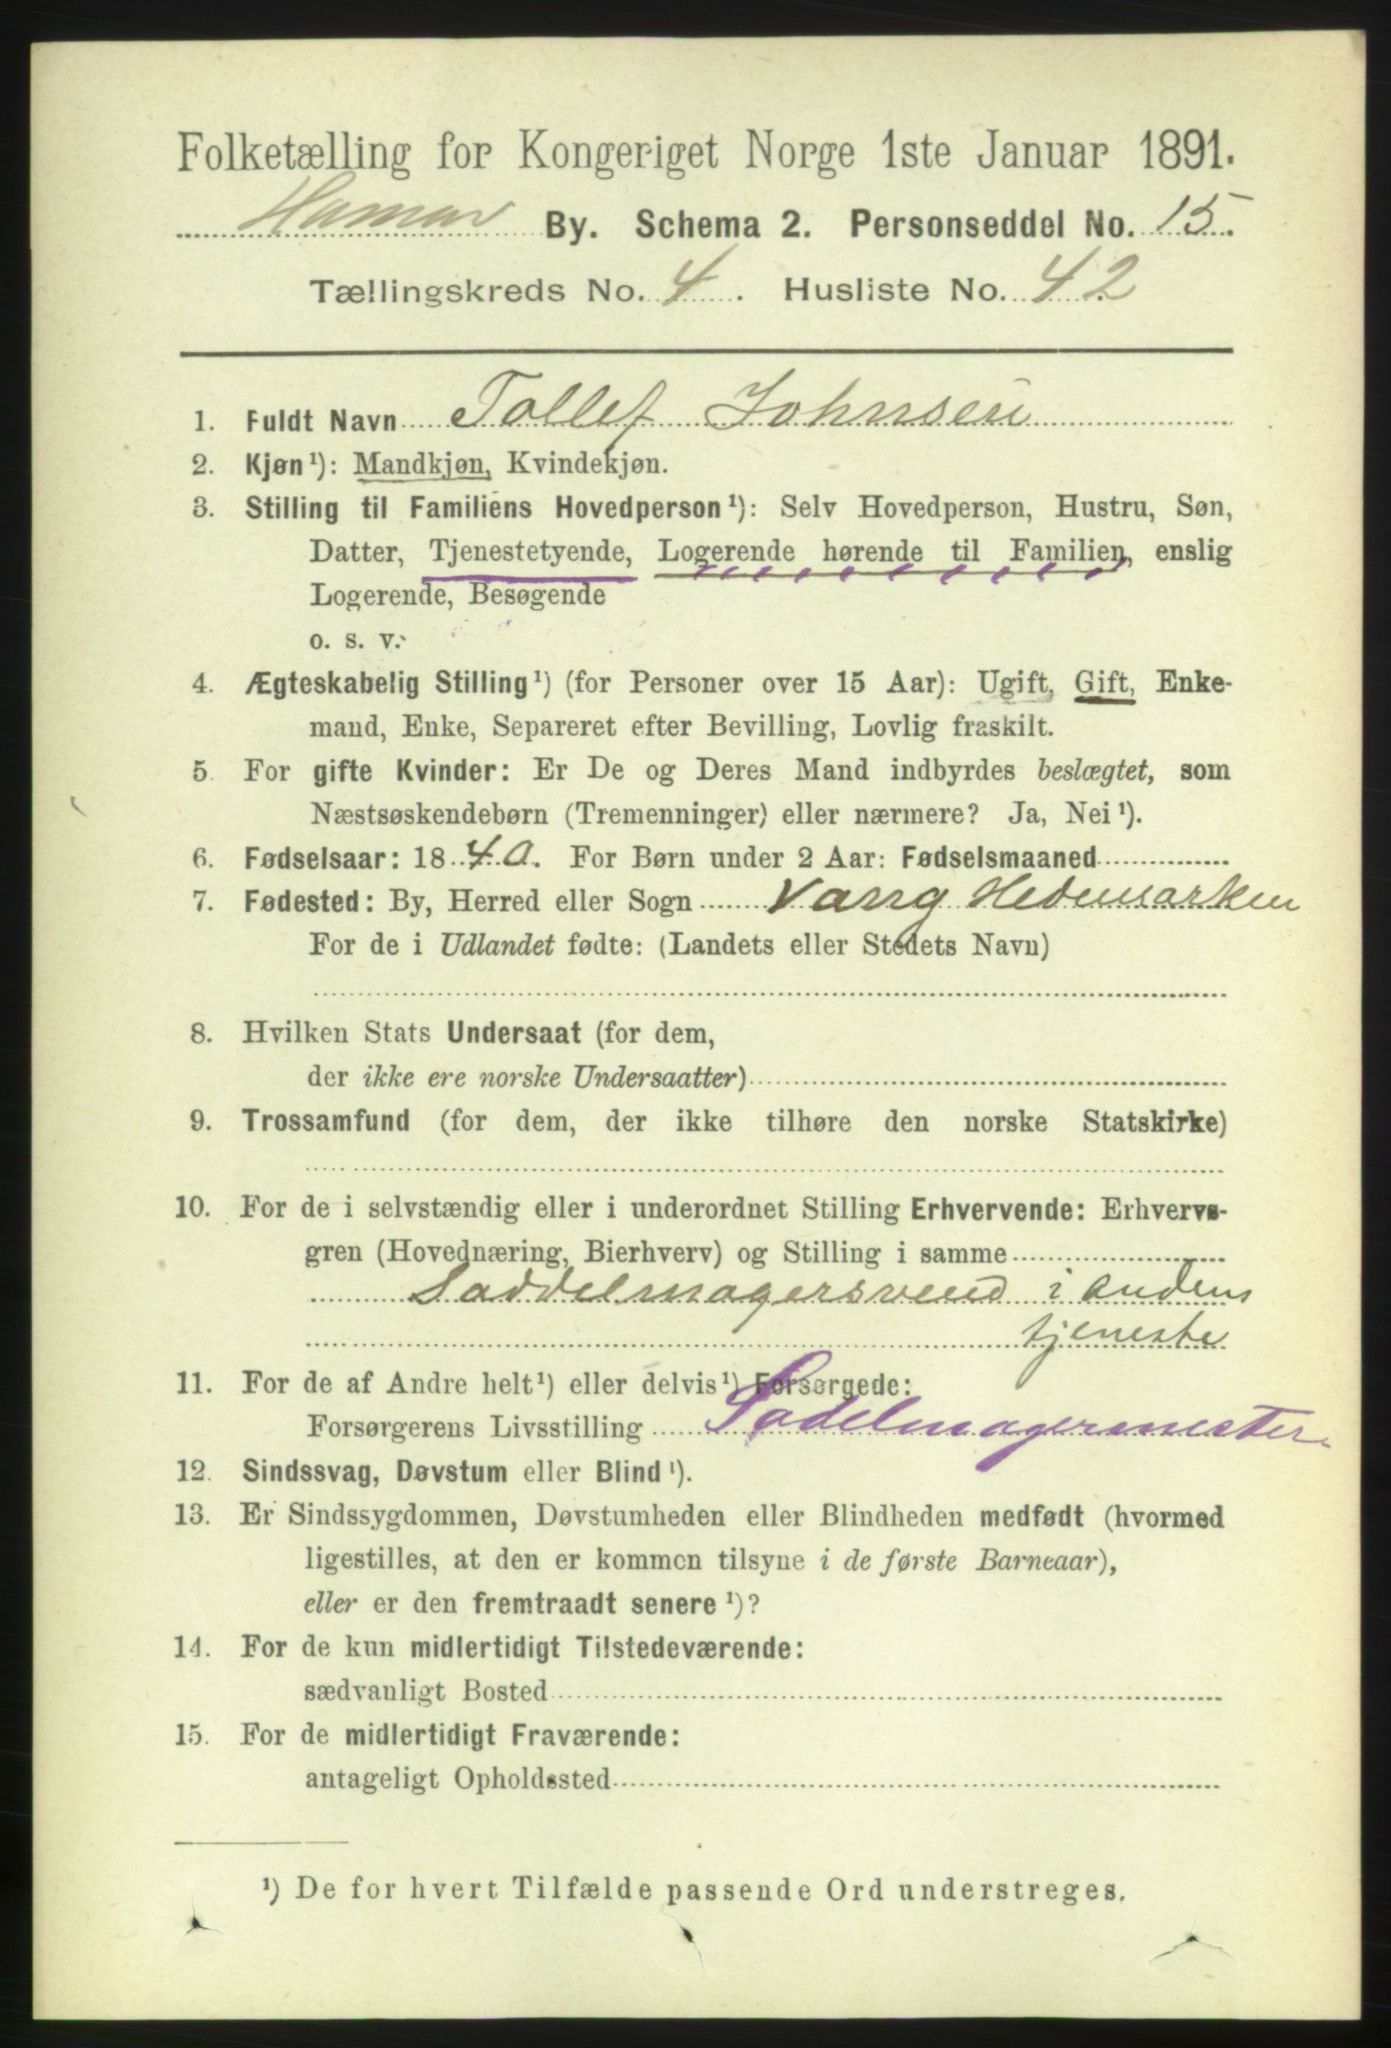 Folketælling for Kongeriget Norge 1ste Januar 1891.
Hamar By. Schema 2. Personseddel No. 15.
Tællingskreds No. 4. Husliste No. 42
1. Fuldt Navn Tollef Johnsen
2. Kjøn¹): Mandkjøn, Kvindekjøn.
3. Stilling til Familiens Hovedperson¹): Selv Hovedperson, Hustru, Søn,
Datter, Tjenestetyende, Logerende hørende til Familien, enslig
Logerende, Besøgende
o. s. v.
4. Ægteskabelig Stilling¹) (for Personer over 15 Aar): Ugift, Gift, Enke-
mand, Enke, Separeret efter Bevilling, Lovlig fraskilt.
5. For gifte Kvinder: Er De og Deres Mand indbyrdes beslægtet, som
Næstsøskendebørn (Tremenninger) eller nærmere? Ja, Nei¹).
6. Fødselsaar: 1840. For Børn under 2 Aar: Fødselsmaaned
7. Fødested: By, Herred eller Sogn Vang Hedemarken
For de i Udlandet fødte: (Landets eller Stedets Navn)
8. Hvilken Stats Undersaat (for dem,
der ikke ere norske Undersaatter)
9. Trossamfund (for dem, der ikke tilhøre den norske Statskirke)
10. For de i selvstændig eller i underordnet Stilling Erhvervende: Erhvervs-
gren (Hovednæring, Bierhverv) og Stilling i samme
Saddelmagersvend i andens
tjeneste
11. For de af Andre helt¹) eller delvis¹) Forsørgede:
Forsørgerens Livsstilling Sadelmagermester
12. Sindssvag, Døvstum eller Blind¹).
13. Er Sindssygdommen, Døvstumheden eller Blindheden medfødt (hvormed
ligestilles, at den er kommen tilsyne i de første Barneaar),
eller er den fremtraadt senere¹)?
14. For de kun midlertidigt Tilstedeværende:
sædvanligt Bosted
15. For de midlertidigt Fraværende:
antageligt Opholdssted
¹) De for hvert Tilfælde passende Ord understreges.